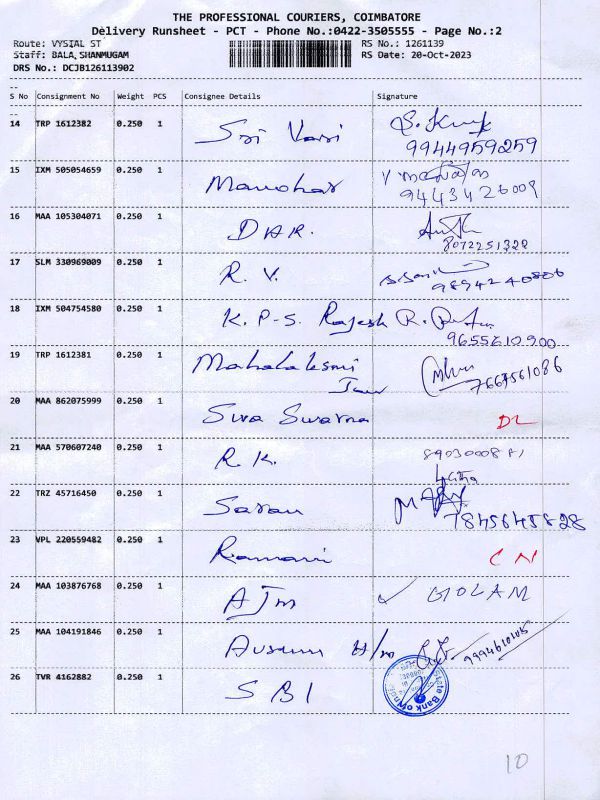 THE PROFESSIONAL COURIERS, COIMBATORE
Delivery Runsheet - PCT - Phone No.:0422-3505555 - Page No.:2
Route: VYSIAL ST RS No.: 1261139
Staff: BALA,SHANMUGAM RS Date: 20-Oct-2023
DRS No.: DCJB126113902
--
S No Consignment No Weight PCS Consignee Details Signature
--
14 TRP 1612382 0.250 1 Sri Vari
9944959259
15 IXM 505054659 0.250 1 Manohar
9443426009
16 MAA 105304071 0.250 1 DHR.
8072251328
17 SLM 330969009 0.250 1 R. V.
9894240806
18 IXM 504754580 0.250 1 K. P-S. Rajesh
9655610900
19 TRP 1612381 0.250 1 Mahalaksmi
20 MAA 862075999 0.250 1 Siva Swarna DL
21 MAA 570607240 0.250 1 R. K.
22 TRZ 45716450 0.250 1 Saran
7845645828
23 VPL 220559482 0.250 1 Ramani CN
24 MAA 103876768 0.250 1 AJM GOLAM
25 MAA 104191846 0.250 1 H/m
26 TVR 4162882 0.250 1 SBI State Bank of India
10